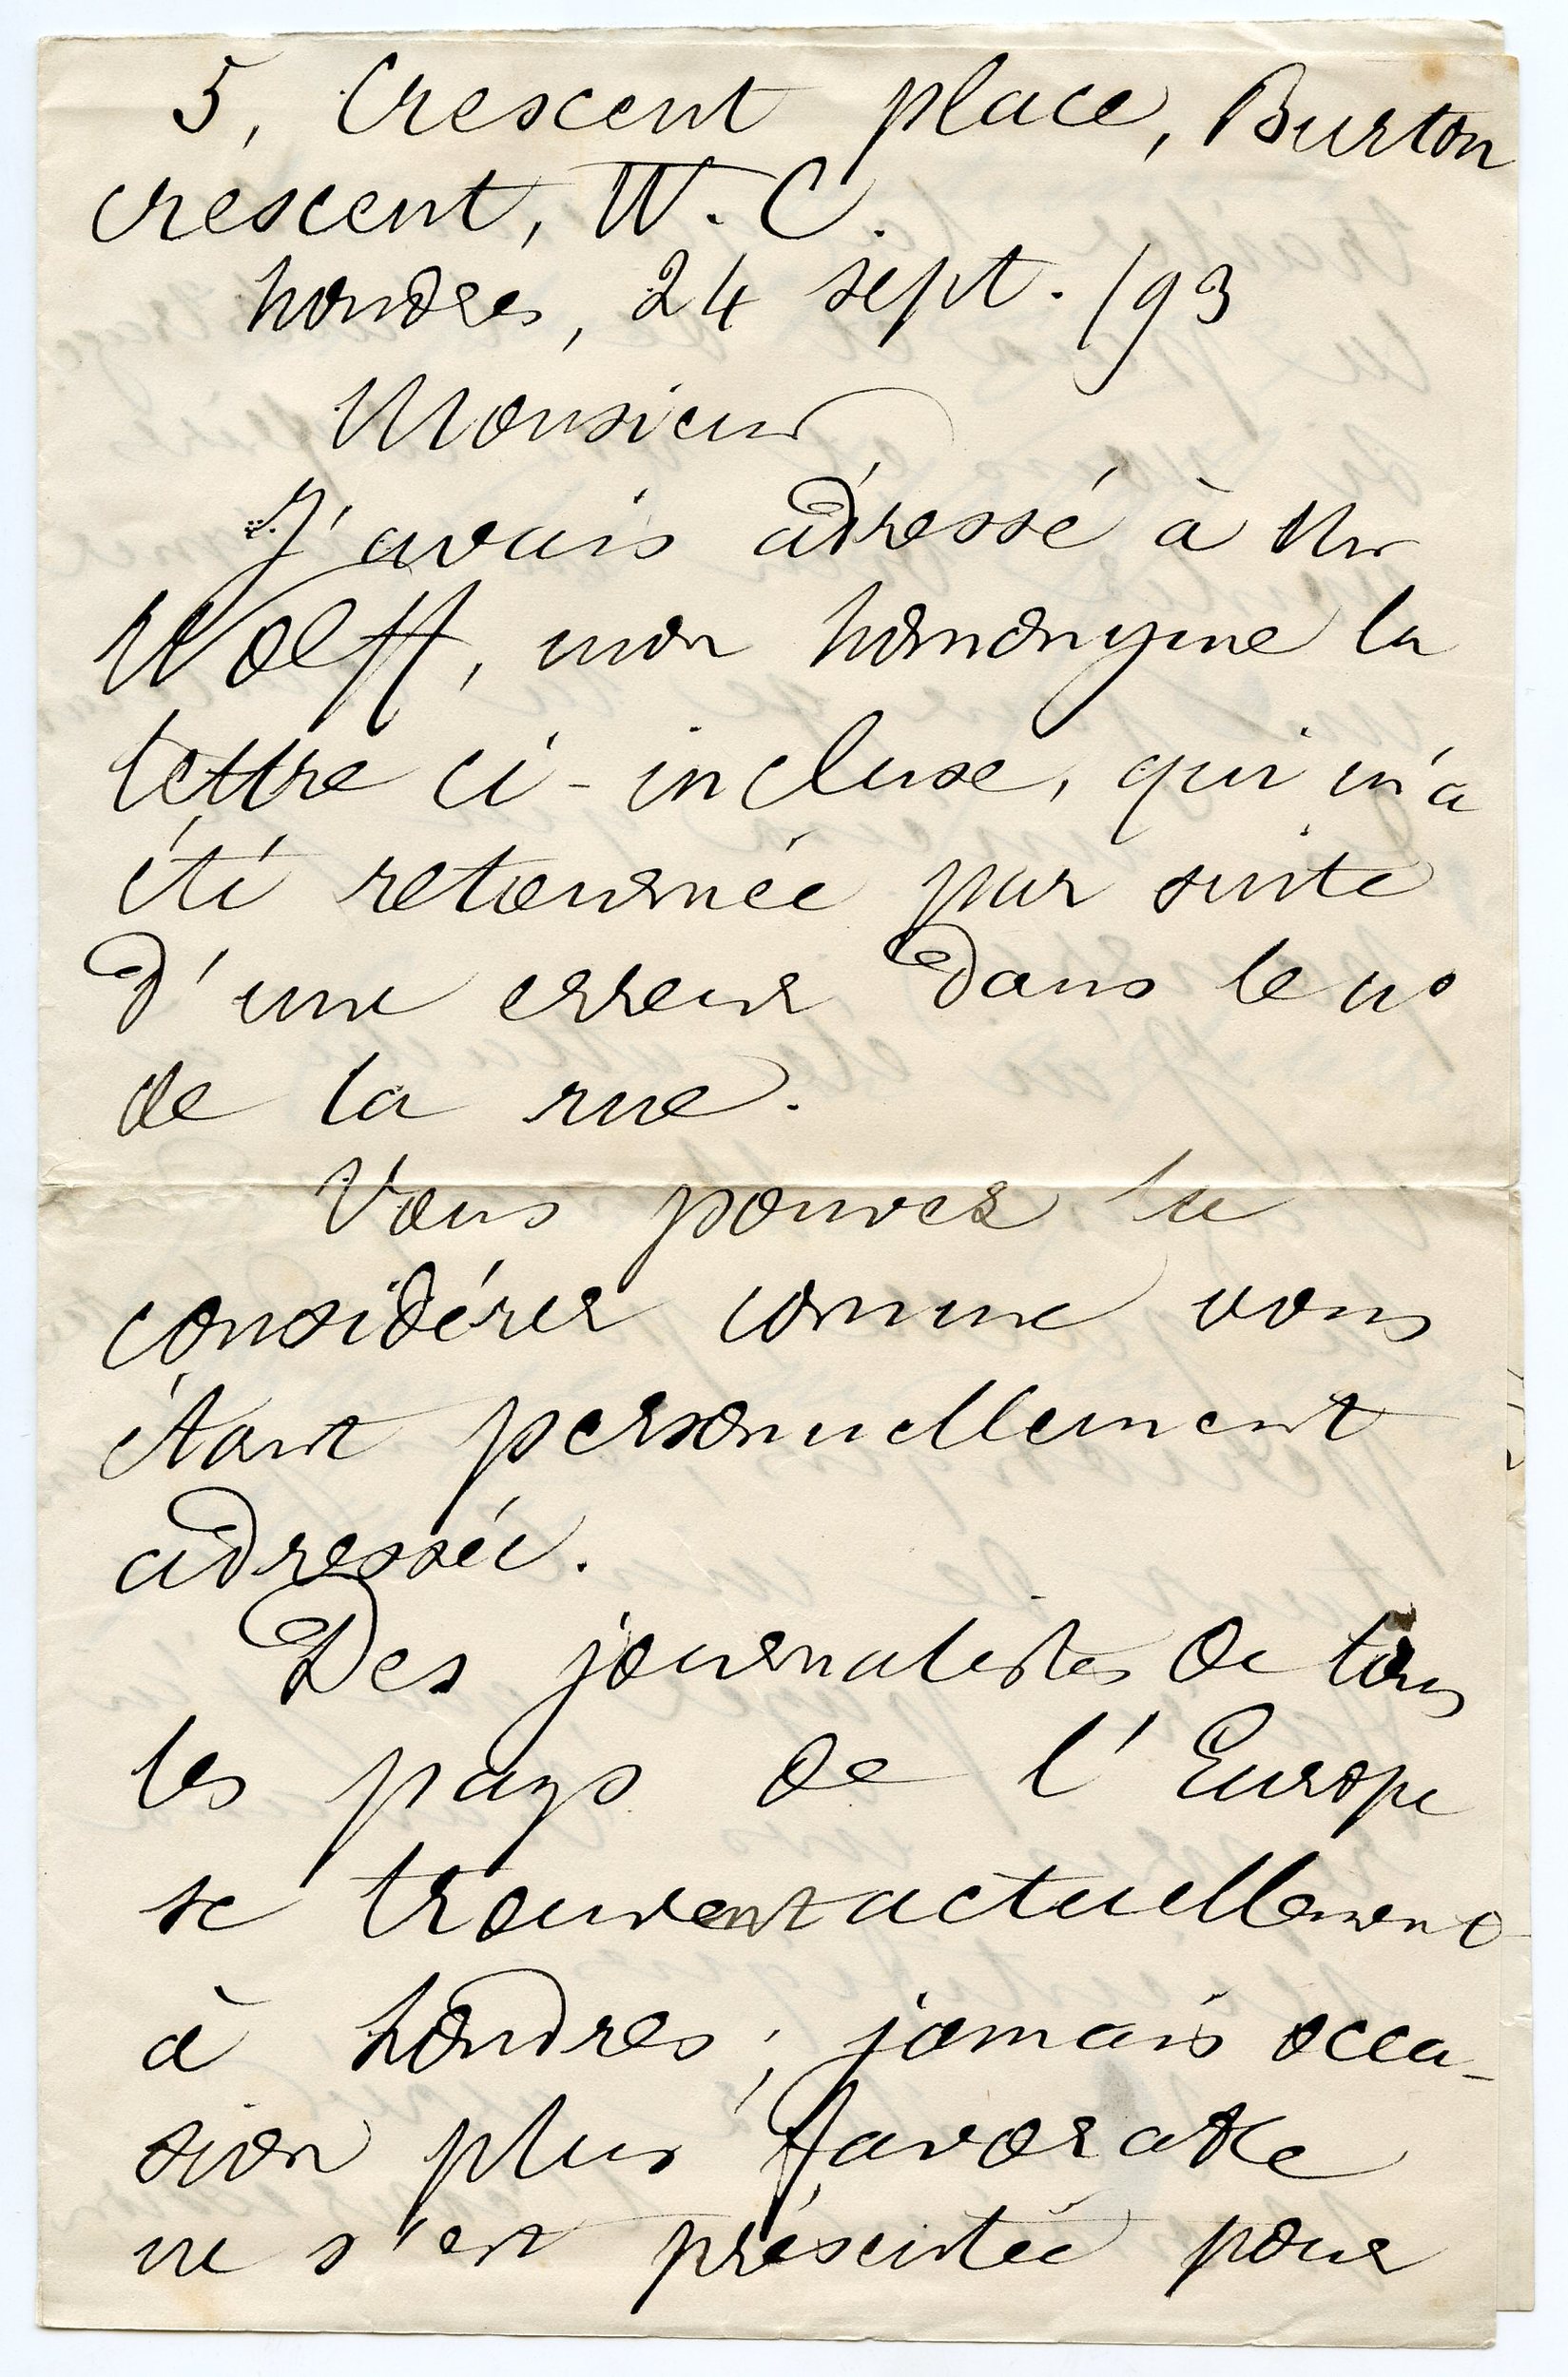 5, Crescent place, Burton
crescent, W. C.
Londres, 24 sept. /93
Monsieur
J'avais adressé à Mr
Wolff, mon homonyme la
lettre ci-incluse, qui m'a
été retournée par suite
d'une erreur dans le no
de la rue.
Vous pouvez la
considérer comme vous
étant personnellement
adressée.
Des journalistes de tous
les pays de l'Europe
se trouvent actuellement
à Londres ; jamais occa-
sion plus favorable
ne s'est présentée pour